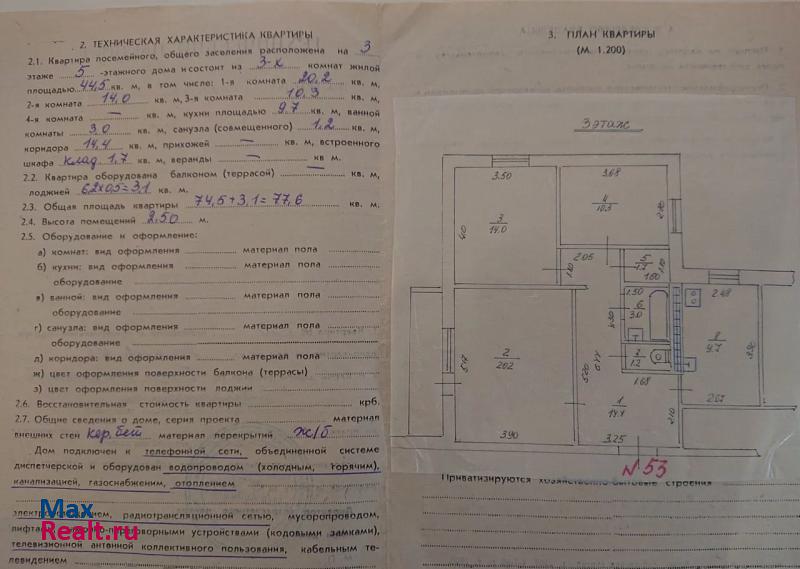 2. ТЕХНИЧЕСКАЯ ХАРАКТЕРИСТИКА КВАРТИРЫ
2.1. Квартира посемейного, общего заселения расположена на 3
этаже 5 -этажного дома и состоит из 3-х комнат жилой
площадью 44,5 кв. м, в том числе: 1-я комната 20,2 кв. м,
2-я комната 14,0 кв. м, 3-я комната 10,3 кв. м,
4-я комната — кв. м, кухни площадью 9,7 кв. м, ванной
комнаты 3,0 кв. м, санузла (совмещенного) 1,2 кв. м,
коридора 14,4 кв. м, прихожей — кв. м, встроенного
шкафа клад. 1,7 кв. м, веранды — кв м.
2.2. Квартира оборудована балконом (террасой) — кв. м,
лоджией 6,2х0,5=3,1 кв. м.
2.3. Общая площадь квартиры 74,5+3,1=77,6 кв. м.
2.4. Высота помещений 2,50 м.
2.5. Оборудование и оформление:
а) комнат: вид оформления материал пола
б) кухни: вид оформления материал пола
оборудование
в) ванной: вид оформления материал пола
оборудование
г) санузла: вид оформления материал пола
оборудование
д) коридора: вид оформления материал пола
ж) цвет оформления поверхности балкона (террасы)
з) цвет оформления поверхности лоджии
2.6. Восстановительная стоимость квартиры крб.
2.7. Общие сведения о доме, серия проекта материал
внешних стен кер.бет материал перекрытий ж/б
Дом подключен к телефонной сети, объединенной системе
диспетчерской и оборудован водопроводом (холодным, горячим),
канализацией, газоснабжением, отоплением
радиотрансляционной сетью, мусоропроводом,
устройствами (кодовыми замками),
телевизионной антенной коллективного пользования, кабельным те-
левидением
Max
Realt.ru
3. ПЛАН КВАРТИРЫ
(М. 1:200)
3 этаж
3.50 3.68
3
14.0
4
10.3
2.05
5
1.7
1.60
1.50
6
3.0
2.48
8
9.7
2
20.2
7
1.2
1.68
1
14.4
3.90
3.25
№53
Приватизируются хозяйственно-бытовые строения